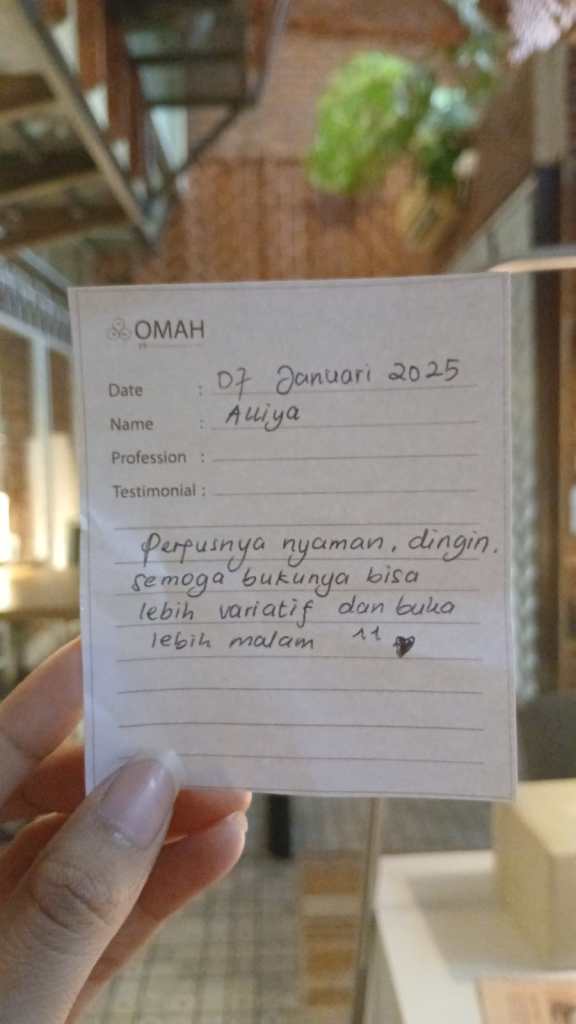 OMAH
Date : 07 Januari 2025
Name : Alliya
Profession :
Testimonial :
Perpusnya nyaman, dingin.
semoga bukunya bisa
lebih variatif dan buka
lebih malam ^^ ♥